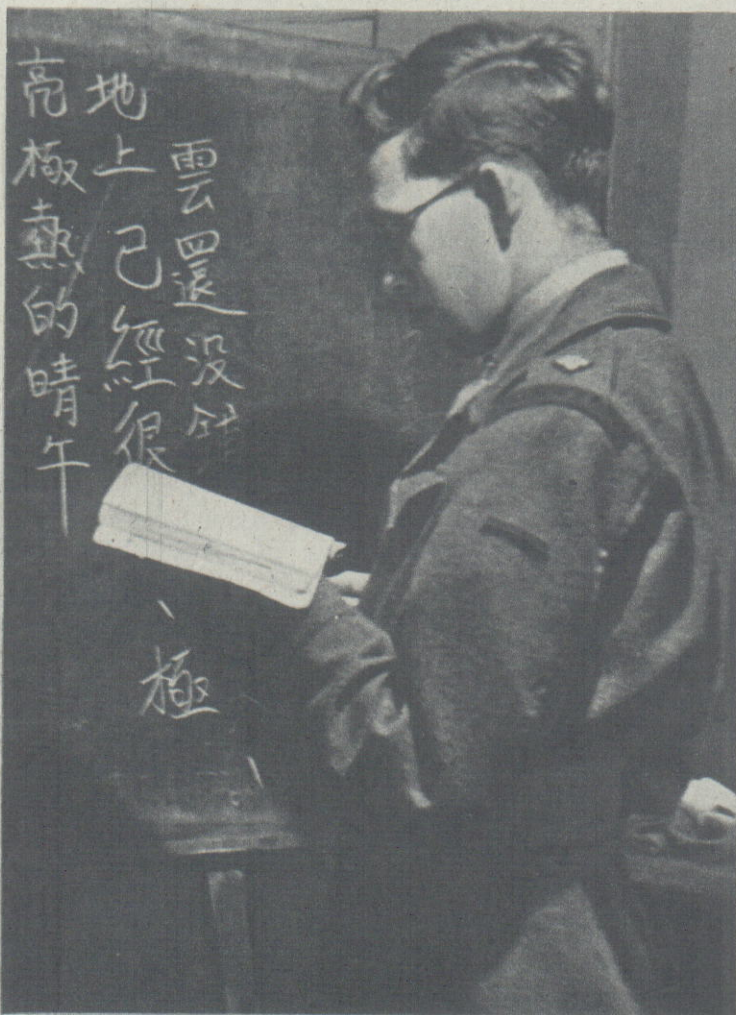 雲還没
地上己經很、極
亮極熱的晴午